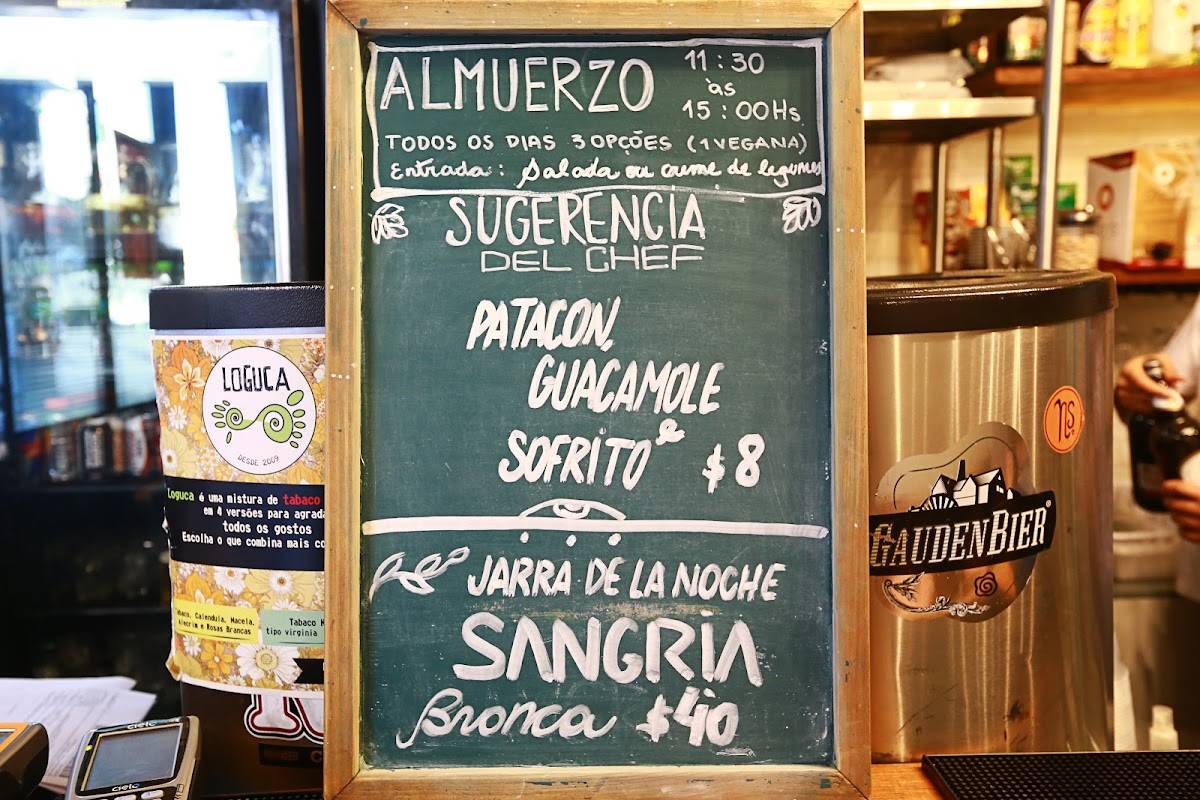 ALMUERZO
11:30
às
15:00Hs
TODOS OS DIAS 3 OPÇÕES (1 VEGANA)
Entrada: Salada ou creme de legumes
SUGERENCIA
DEL CHEF
PATACON,
GUACAMOLE
e
SOFRITO $8
JARRA DE LA NOCHE
SANGRIA
Bronca $40
LOGUCA
DESDE 2009
Loguca é uma mistura de tabaco
em 4 versões para agrada
todos os gostos
Escolha o que combina mais co
Calendula, Macela,
Alecrim e Rosas Brancas
Tabaco
tipo virginia
cielo
cielo
ns
GAUDENBIER